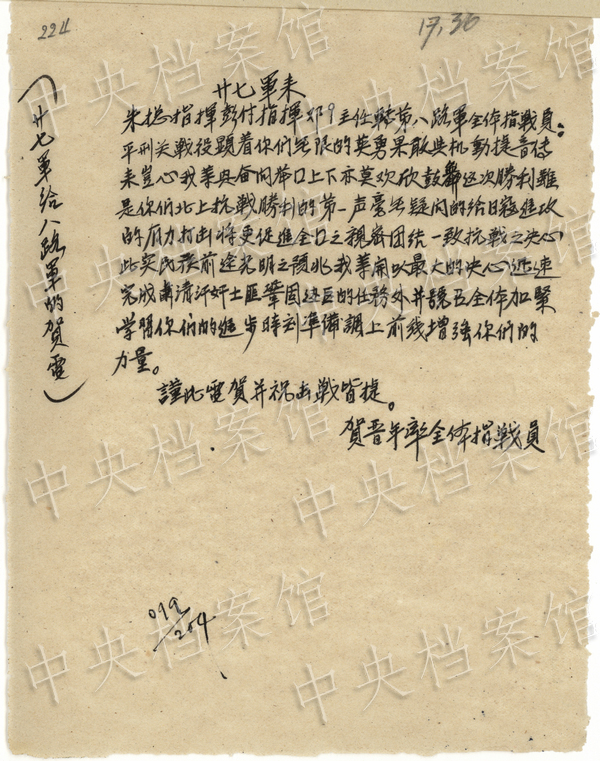 224
17,36
(廿七軍给八路軍的賀電)
廿七軍耒
朱揔指揮彭付指揮 主任轉第八路軍全体指戰員:
平刑关戰役顕着你们無限的英勇果敢与机動捷音传
耒豈心我等與 口上下亦莫欢欣鼓舞这次勝利雖
是你们北上抗戰勝利的第一声毫无疑问的给日寇進攻
的 力打击将更促進全口之親密团结一致抗戰之决心
此实民族前途光明之预兆我等 以最大的决心迅速
完成肃清汗奸土匪鞏固边区的任務外并 全体加緊
学習你们的進步時刻準備調上前线增強你们的
力量。
謹此電賀并祝击戰皆捷。
賀晋年率全体指戰員
019/204
中央档案馆